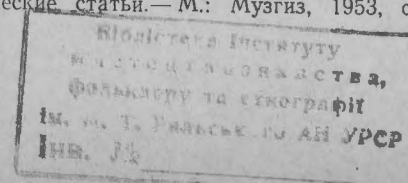 еские статьи.— М.: Музгиз, 1953, с
Бібліотека Інституту
мистецтвознавства,
фольклору та етнографії
ім. М. Т. Рильського АН УРСР
Інв. №